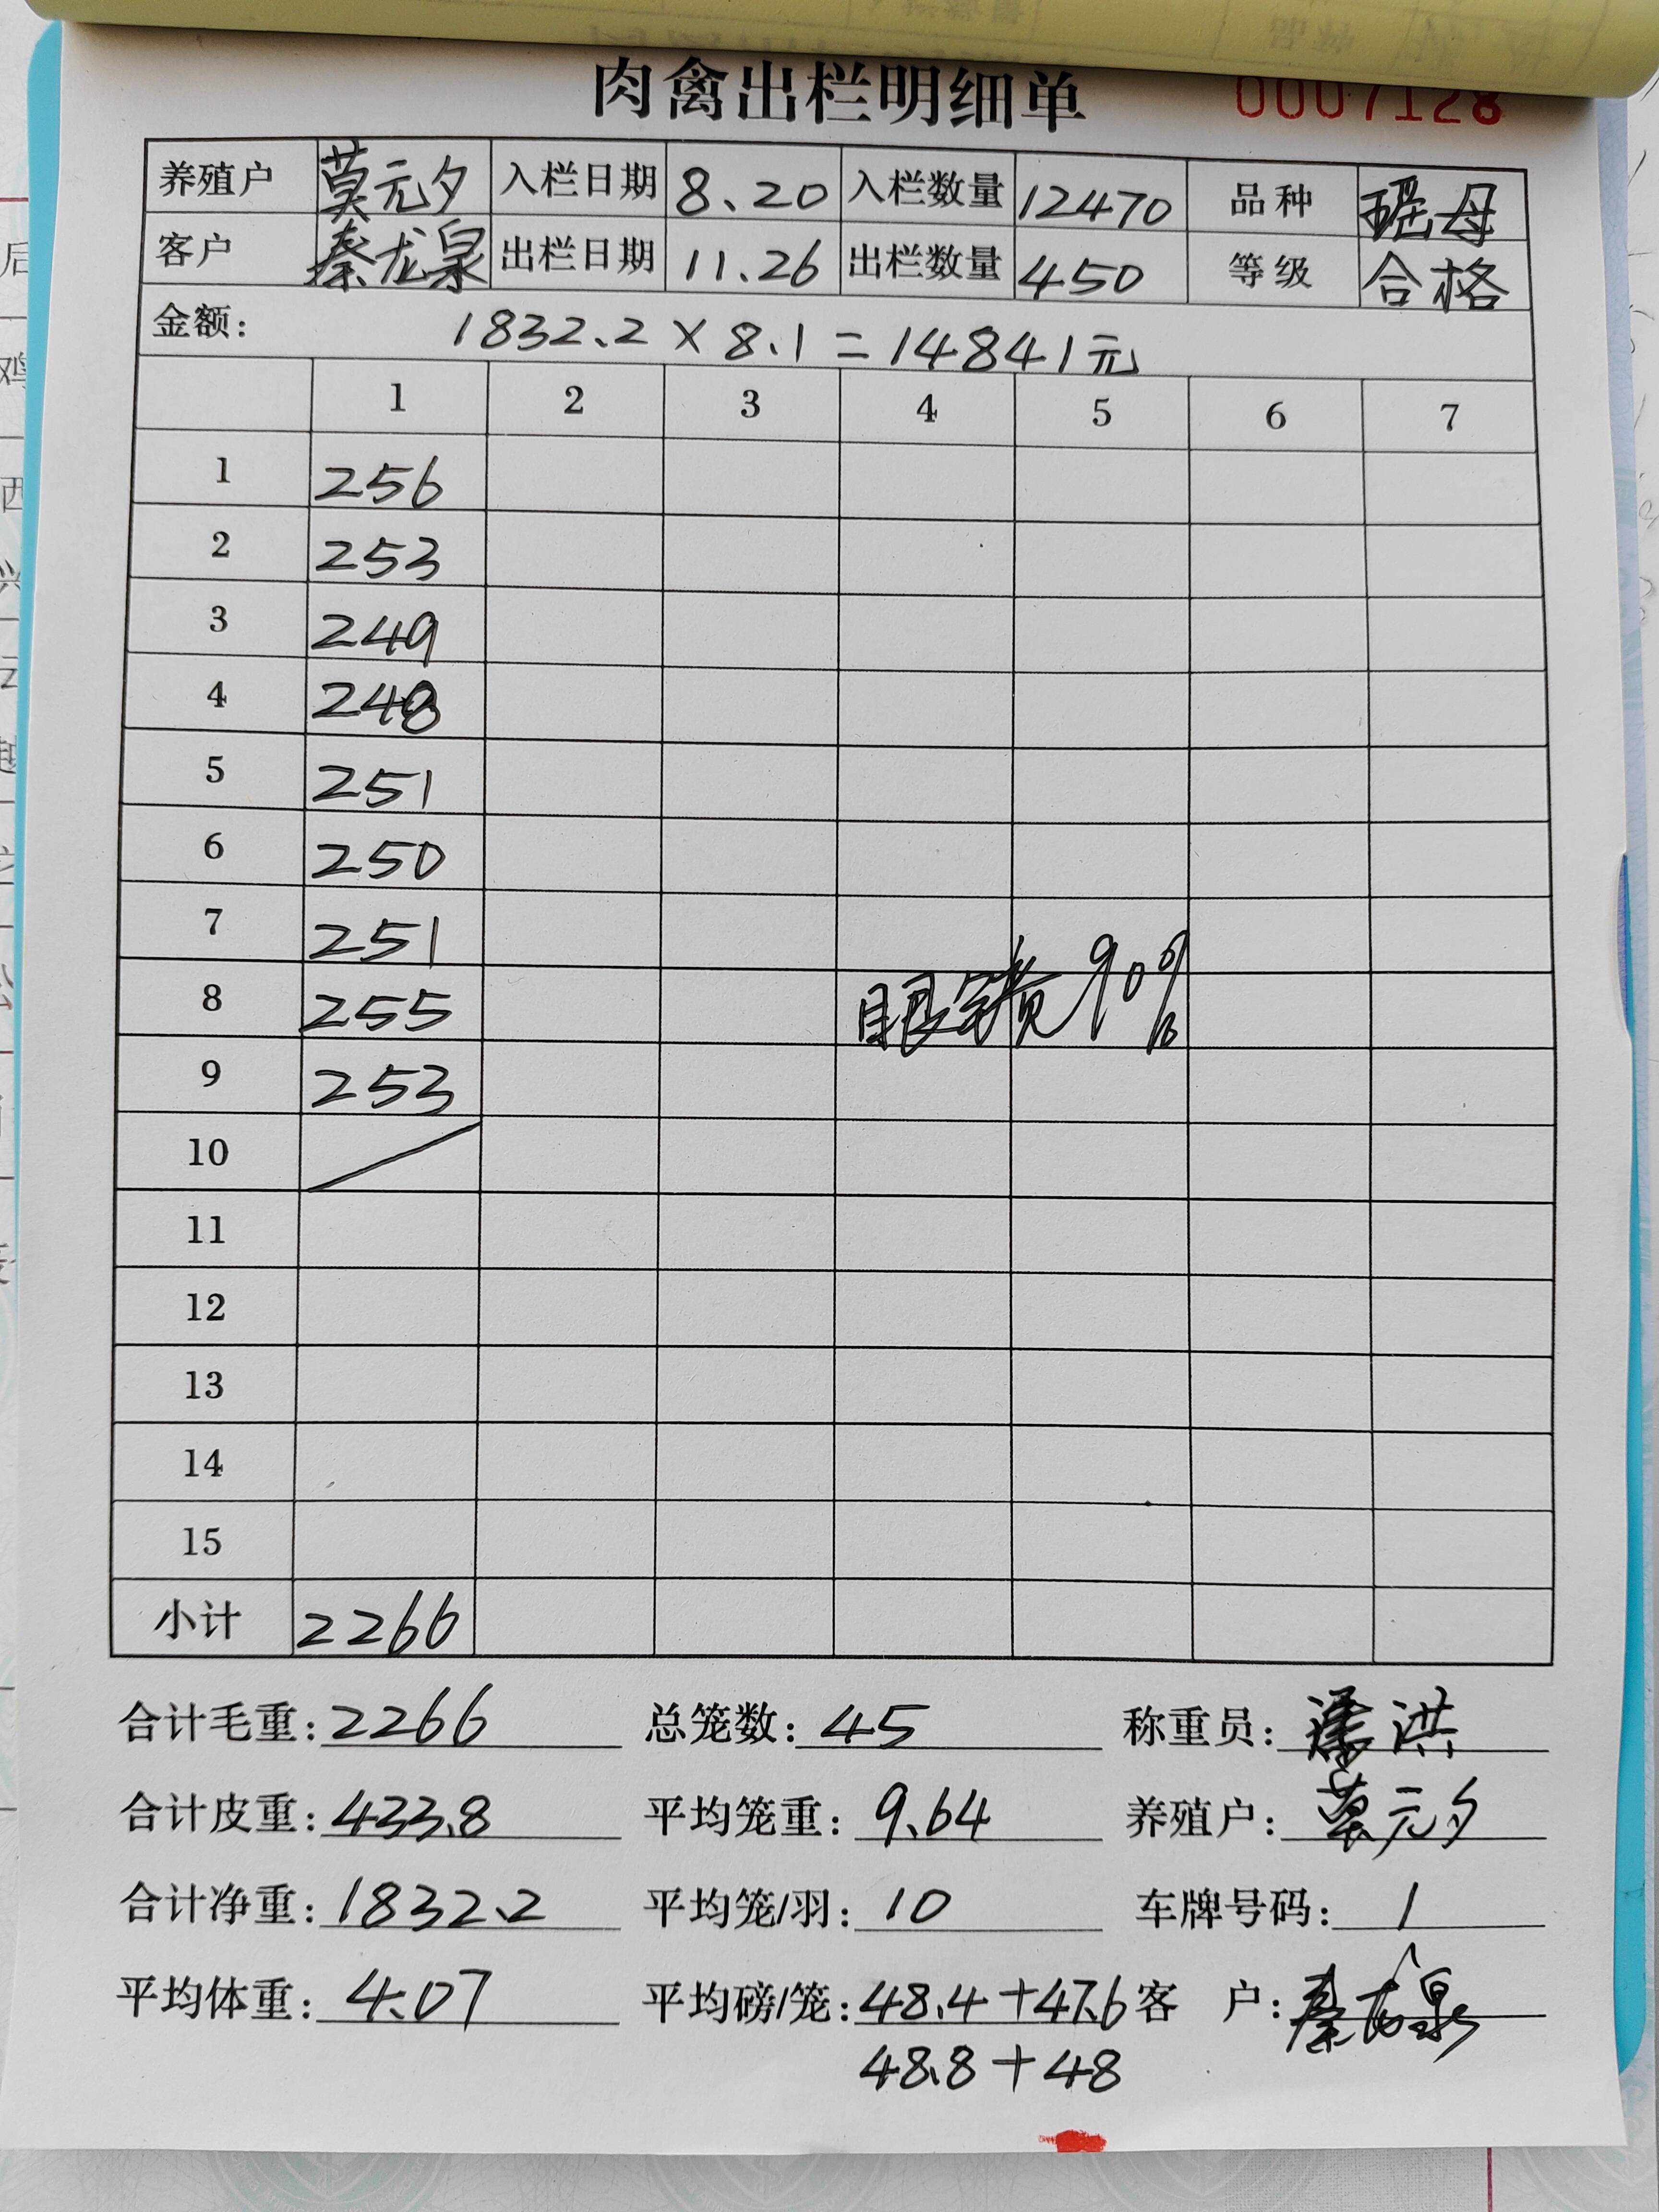 肉禽出栏明细单 0007128
养殖户 莫元夕 入栏日期 8.20 入栏数量 12470 品种 瑶母
客户 秦龙泉 出栏日期 11.26 出栏数量 450 等级 合格
金额: 1832.2 × 8.1 = 14841元
1 2 3 4 5 6 7
1 256
2 253
3 249
4 248
5 251
6 250
7 251
8 255 眼 90%
9 253
10
11
12
13
14
15
小计 2266
合计毛重: 2266 总笼数: 45 称重员: 洪
合计皮重: 433.8 平均笼重: 9.64 养殖户: 莫元夕
合计净重: 1832.2 平均笼/羽: 10 车牌号码: 1
平均体重: 4.07 平均磅/笼: 48.4+47.6 客 户: 秦龙泉
48.8+48